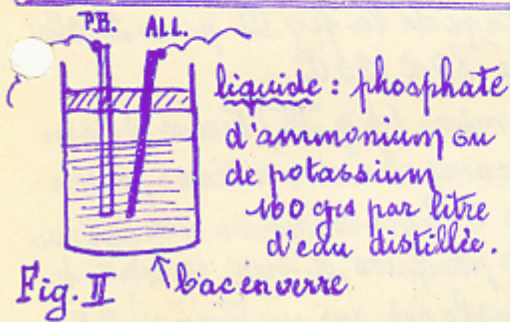 P.B. ALL.
liquide : phosphate
d'ammonium ou
de potassium
100 grs par litre
d'eau distillée.
bac en verre
Fig. II